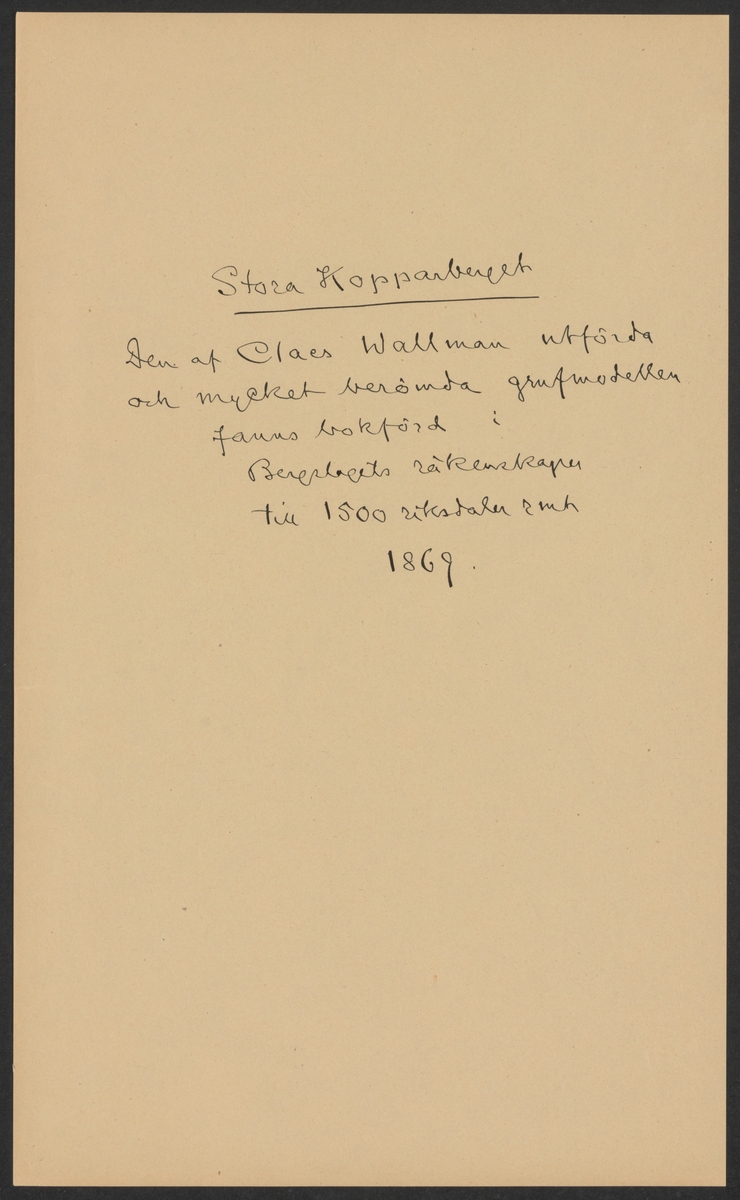 Stora Kopparberget
Den af Claes Wallman utförda
och mycket berömda grufmodellen
fanns bokförd i
Bergslagets räkenskaper
till 1500 riksdaler rmt
1869.